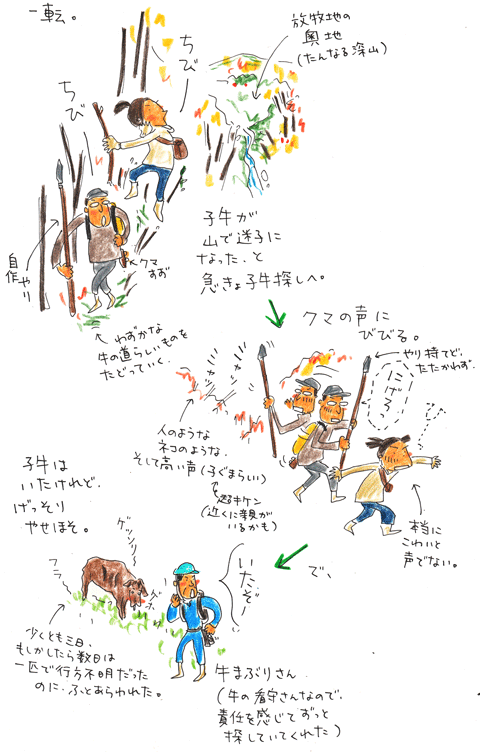 一転。
放牧地の
奥地
(たんなる深山)
ちびー
ちび
自作やり
クマ
すず
わずかな
牛の道らしいものを
たどっていく、
子牛が
山で迷子に
なった、と
急きょ子牛探しへ。
クマの声に
びびる。
やり持てど、
たたかわず。
にげろっ
ギャッ
ギャッ
人のような
ネコのような、
そして高い声(子グマらしい)
超キケン
(近くに親が
いるかも)
本当に
こわいと
声でない。
子牛は
いたけれど、
げっそり
やせほそ。
ゲッソリ
フラ〜
いたぞー
で、
少くとも三日、
もしかしたら数日は
一匹で行方不明だった
のに、ふっとあらわれた。
牛まぶりさん
(牛の看守さんなので、
責任を感じてずっと
探していてくれた)